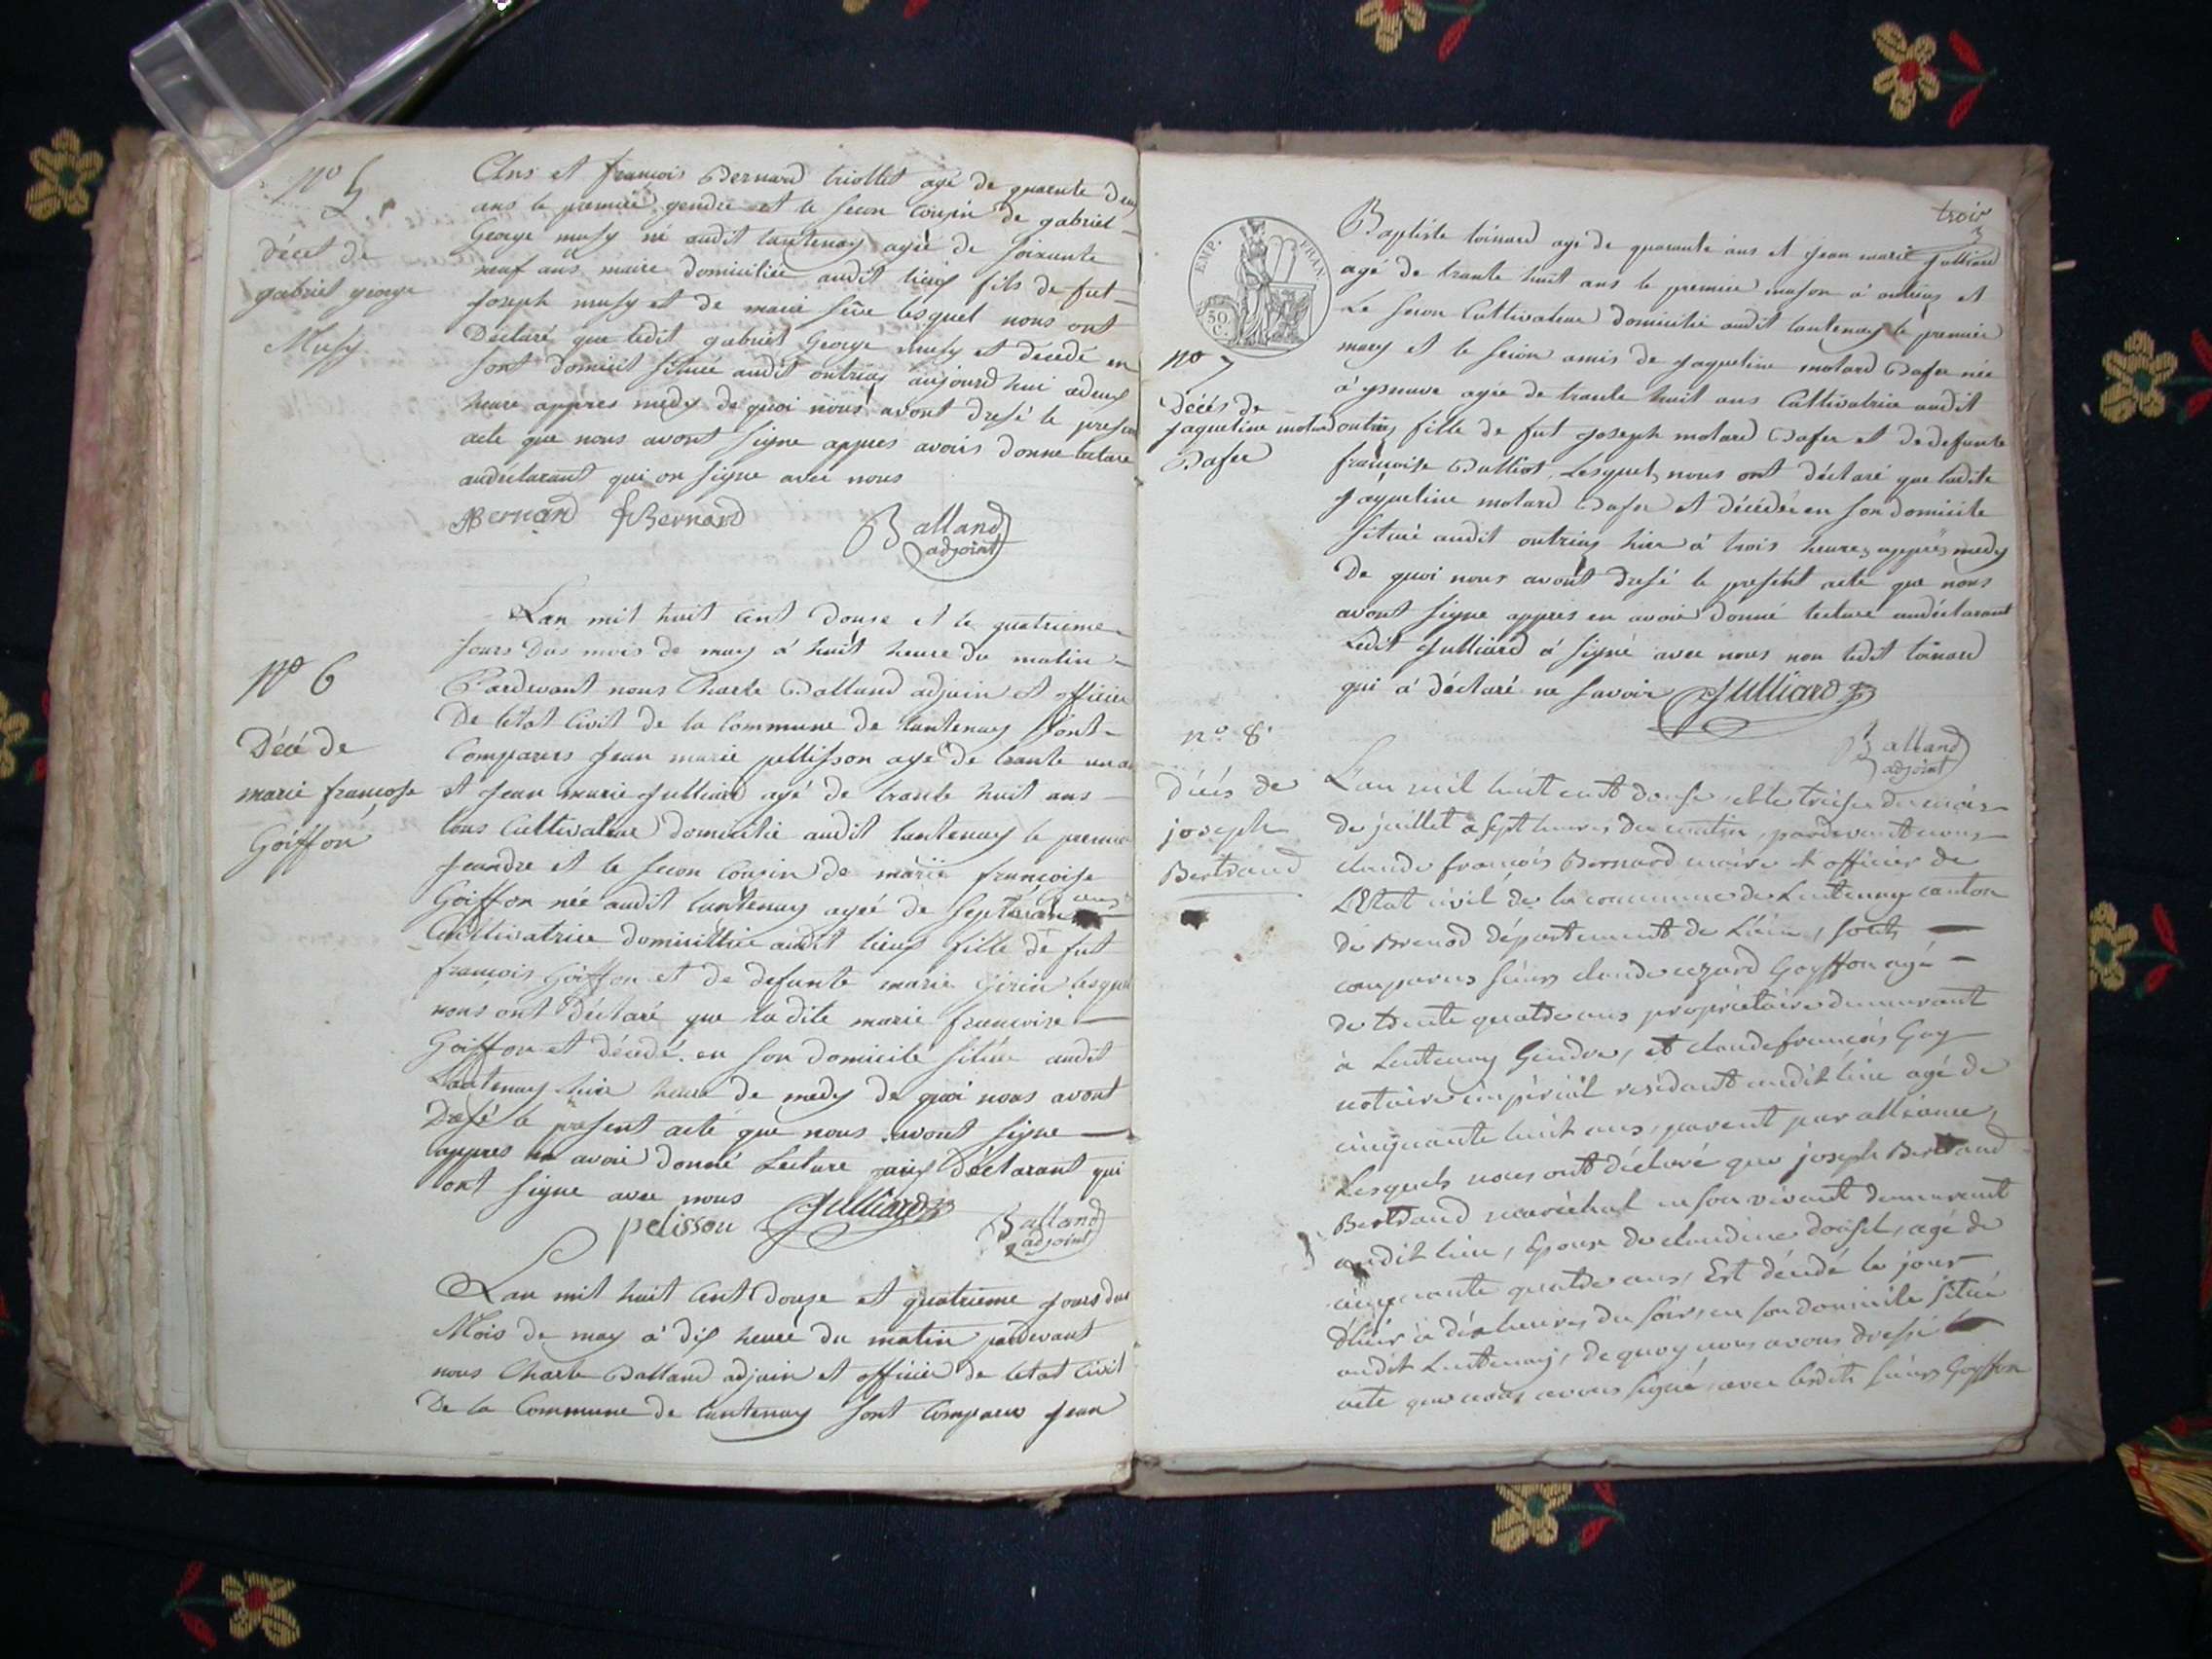 No 5
décet de
gabriel george
Musy
Ans et françois Bernard triollet agé de quarente deux
ans le premiee gendre et le secon cousin de gabriel
George musy né audit lantenay agée de soixante
neuf ans maire domiciliée audit lieuy fils de fut
Joseph musy et de marie sêve lesquel nous ont
Déclaré que ledit gabriel George musy et décédé en
sont domicil située audit outriaz aujourd'hui adeuy
heure appres medy de quoi nous avont dresé le presen
acte que nous avont signe appres avoir donne lecture
audéclarant qui on signe avec nous
Bernand fBernard
Balland
adjoint
No 6
Décé de
marie françose
Goiffon
Lan mil huit cent douse et le quatrieme
jours dus mois de may à huit heure du matin
Pardevant nous Charle Balland adjoin et officier
De létat Civil de la Commune de lantenay sont
Comparus Jean marie pellisson agé de trante
et Jean marie Julliard agé de trante huit ans
tous Cultivateur domicilié audit lantenay le premier
jeandre et le secon cousin de marie françoise
Goiffon née audit lantenay agée de ans
Cultivatrice domicillié audit lieuy fille de fut
françois Goiffon et de defunte marie Girin lesquel
nous ont déclaré que ladite marie françoise
Goiffon et décédé en son domicile située audit
Lantenay hire heure de medy de quoi nous avont
Dresé le present acte que nous avont signe
appres en avoir donné Lecture auy déclarant qui
ont signe avec nous
pelisson Julliard
Balland
adjoint
Lan mil huit cent douze et quatrieme jours dus
Mois de may à dix heure du matin pardevant
nous Charle Balland adjoin et officier de létat Civil
De la Commune de lantenay sont Comparus Jean
trois
3
EMP. FRAN.
50
C.
Baptiste toinard age de quarante ans et Jean marie Julliard
agé de trante huit ans le premier mason à outriaz et
Le secon Cultivateur domicilié audit lantenay le premier
mary et le secion amis de Jaqueline molard Dafer née
à agée de trante huit ans Cultivatrice audit
No 7
Décès de
jaqueline molard
Dafer
outriaz fille de fut Joseph molard Dafer et de defunte
françoise Bulliot Lesquel nous ont déclaré que ladite
Jaqueline molard Dafer et décédée en son domicile
située audit outriaz hier à trois heures appres medy
De quoi nous avont dresé le present acte que nous
avont signe appres en avoir donné lecture audéclarant
Ledit Julliard à signé avec nous non ledit toinard
qui à déclaré ne savoir Julliard
Balland
adjoint
n° 8
décès de
joseph
Bertrand
L'an mil huit cent douse et le treise du mois
de juillet a sept heures du matin, pardevant nous
claude françois Bernard maire et officier de
L'Etat civil de la commune de Lantenay canton
de Brenod département de L'ain, sont
comparus sieurs claude cezard Goyffon agé
de trente quatre ans propriétaire demeurant
à Lantenay Gendre, et claude françois Goy
notaire impérial résidant audit lieu agé de
cinquante huit ans, parent par alliance,
Lesquels nous ont déclaré que joseph Bertrand
Bertrand maréchal en son vivant demeurant
audit lieu, Epoux de claudine , agé de
cinquante quatre ans, Est décédé le jour
d'hier à dix heures du soir, en son domicile situé
audit Lantenay, de quoy nous avons dressé
acte que nous avons signé, avec lesdits sieurs Goyffon